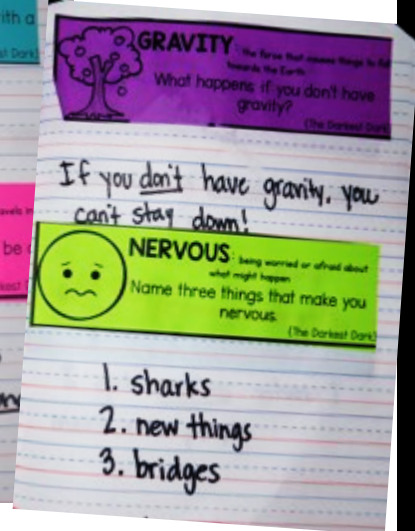 ith a
st Dark)
GRAVITY: the force that causes things to fall
towards the Earth
What happens if you don't have
gravity?
(The Darkest Dark)
If you don't have gravity, you
can't stay down!
avels in
be
kest
NERVOUS: being worried or afraid about
what might happen
Name three things that make you
nervous.
(The Darkest Dark)
1. sharks
2. new things
3. bridges